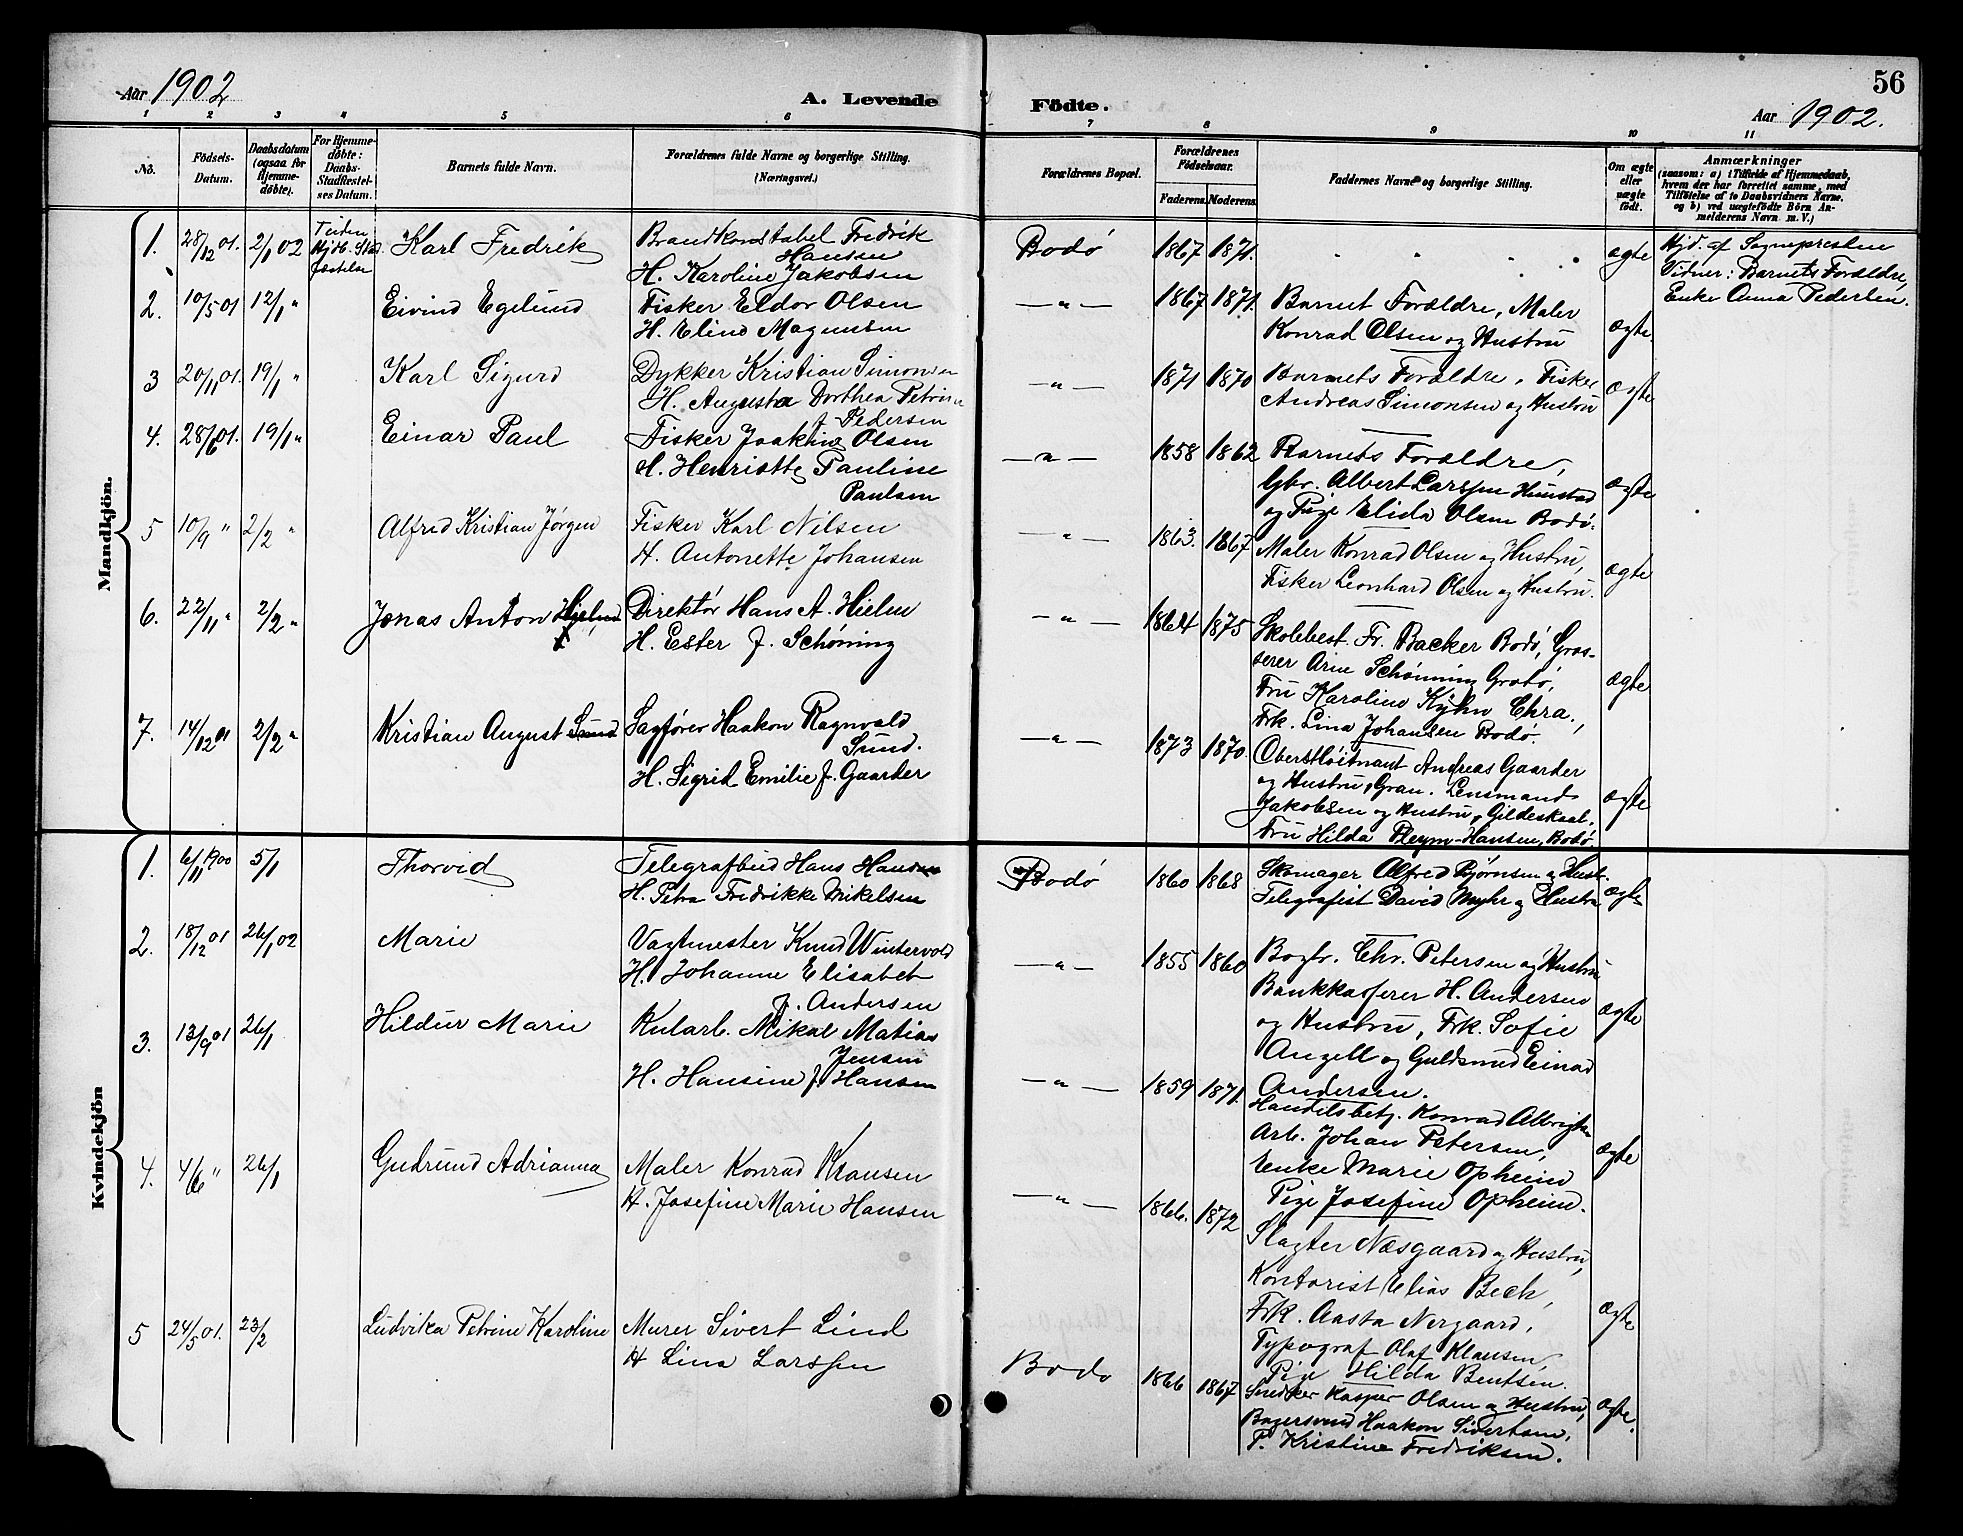 Aar 1902
A. Levende
Födte.
56
Aar 1902.
1 2 3 4 5 6 7 8 9 10 11
No.
Födsels-
Datum.
Daabsdatum
(ogsaa for
Hjemme-
döbte).
For Hjemme-
döbte:
Daabs-
Stadfæstel-
ses Datum.
Barnets fulde Navn.
Forældrenes fulde Navne og borgerlige Stilling.
(Næringsvei.)
Forældrenes Bopæl.
Forældrenes
Födselsaar.
Faderens. Moderens.
Faddernes Navne og borgerlige Stilling.
Om ægte
eller
uægte
födt.
Anmærkninger
(saasom: a) i Tilfælde af Hjemmedaab,
hvem der har forrettet samme, med
Tilföielse af to Daabsvidners Navne,
og b) ved uægtefödte Börn An-
melderens Navn m. V.)
Mandkjön.
1. 28/12 01. 2/1 02 Karl Fredrik Brandkonstabel Fredrik
Hansen
H. Karoline Jakobsen
Bodø 1867 1871. ægte
Hjd. af Sognepresten
Vidner: Barnets Forældre,
Enke Anna Pedersen.
2. 10/5 01 12/1 " Eivind Egelund Fisker Eldor Olsen
H. Eline Magnusen
— " — 1867 1871. Barnet Forældre, Maler
Konrad Olsen og Hustru ægte
3 20/11 01. 19/1 " Karl Sigurd Dykker Kristian Simonsen
H. Augusta Dorthea Petrine
f. Pedersen
— " — 1871 1870 Barnets Forældre, Fisker
Andreas Simonsen og Hustru ægte
4. 28/6 01. 19/1 " Einar Paul Fisker Joakim Olsen
H. Henriette Pauline
Paulsen
— " — 1858 1862 Barnets Forældre,
Gbr. Albert Larssen Hunstad
og Pige Elida Olsen Bodø. ægte
5 10/9 " 2/2 " Alfred Kristian Jørgen Fisker Karl Nilsen
H. Antonette Johansen
— " — 1863. 1867 Maler Konrad Olsen og Hustru,
Fisker Leonhard Olsen og Hustru. ægte
6. 22/11 " 2/2 " Jonas Anton Hjelm Direktør Hans A. Hielm
H. Ester f. Schøning
— " — 1864 1875 Skolebest. Fr. Backer Bodø, Gros-
serer Arne Schønning Grøtø,
Fru Karoline Kyhn Chra.,
Frk. Lina Johansen Bodø. ægte
7. 14/12 01 2/2 " Kristian August Sund Sagfører Haakon Ragnvald
Sund.
H. Sigrid Emilie f. Gaarder
— " — 1873 1870. Oberstløitnant Andreas Gaarder
og Hustru, Gran. Lensmand
Jakobsen og Hustru, Gildeskaal.
Fru Hilda Pleym-Hansen, Bodø ægte
Kvindekjön
1. 6/11 1900 5/1 Thorvid Telegrafbud Hans Hansen
H. Petra Fredrikke Mikelsen
Bodø 1860 1868 Skomager Alfred Bjørnsen og Hust.
Telegrafist David Myhr og Hustru ægte
2. 18/12 01 26/1 02 Marie Vagtmester Knud Wintervold
H. Johanne Elisabet
f. Andersen
— " — 1855 1860 Bogtr. Chr. Petersen og Hustru
Bankkasserer H. Andersen
og Hustru, Frk. Sofie
Angell og Guldsmed Einar
Andersen. ægte
3. 13/9 01 26/1 Hildur Marie Kularb. Mikal Matias
Jensen
H. Hansine f. Hansen
— " — 1859 1871. Handelsbetj. Konrad Albrigtsen
Arb. Johan Petersen,
Enke Marie Opheim
Pige Josefine Opheim. ægte
4. 4/6 " 26/1 Gudrund Adrianna Maler Konrad Klausen
H. Josefine Marie Hansen
— " — 1866. 1872 Slagter Næsgaard og Hustru,
Kontorist Elias Beck,
Frk. Aasta Nergaard,
Typograf Olaf Klausen,
Pige Hilda Bentsen. ægte
5 24/5 01. 23/2 Ludvika Petrine Karoline Murer Sivert Lind
H Lina Larssen
Bodø 1866 1867 Snedker Kasper Olsen og Hustru,
Bagersvend Haakon Sivertsen,
P. Kristine Fredriksen. ægte.